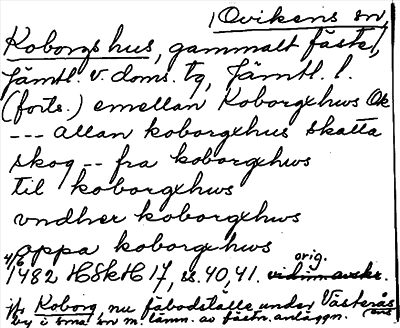 Ovikens sn,
Koborgs hus, gammalt fäste,
Jämtl. v. doms. tg, Jämtl. l.
(forts.) emellan Koborgxhws Ok
--- allan koborgxhus skatta
skog -- fra koborgxhws
til koborgxhws
vndher koborgxhws
oppa koborgxhws
4/6 1482 HSkH 17, s. 40, 41. orig.
jfr Koborg nu fäbodställe under Västerås
by i sma sn m. lämn. av fästn. anläggn.